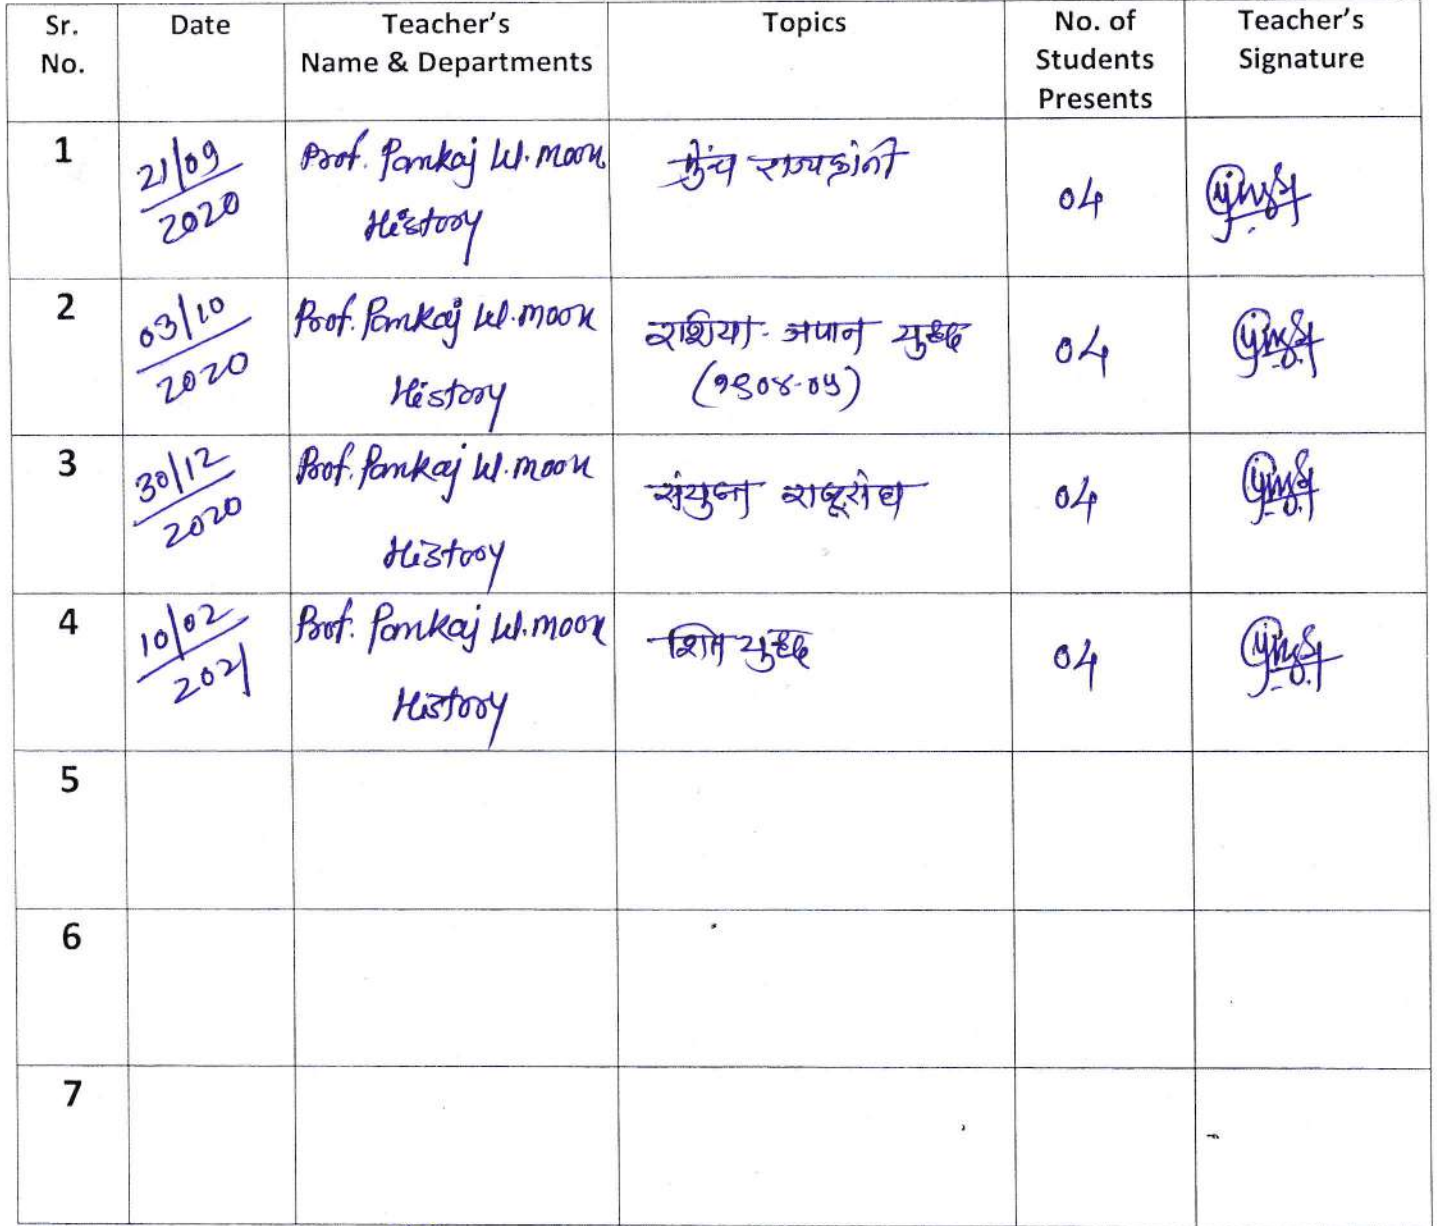 Sr. No.
Date
Teacher's Name & Departments
Topics
No. of Students Presents
Teacher's Signature
1
21/09
2020
Prof. Pankaj W. Moon
History
फ्रेंच राज्यक्रांती
04
2
03/10
2020
Prof. Pankaj W. Moon
History
रशिया-जपान युद्ध
(१९०४-०५)
04
3
30/12
2020
Prof. Pankaj W. Moon
History
संयुक्त राष्ट्रसंघ
04
4
10/02
2021
Prof. Pankaj W. Moon
History
शित युद्ध
04
5
6
7